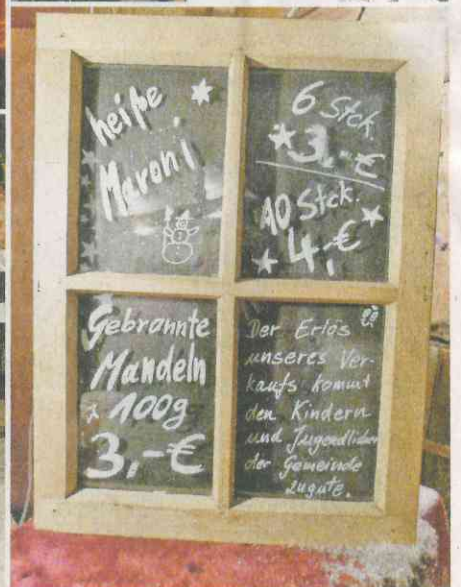 heiße
Maroni
6 Stck.
3,-€
10 Stck.
4,-€
Gebrannte
Mandeln
100g
3,-€
Der Erlös
unseres Ver-
kaufs kommt
den Kindern
und Jugendlichen
der Gemeinde
zugute.